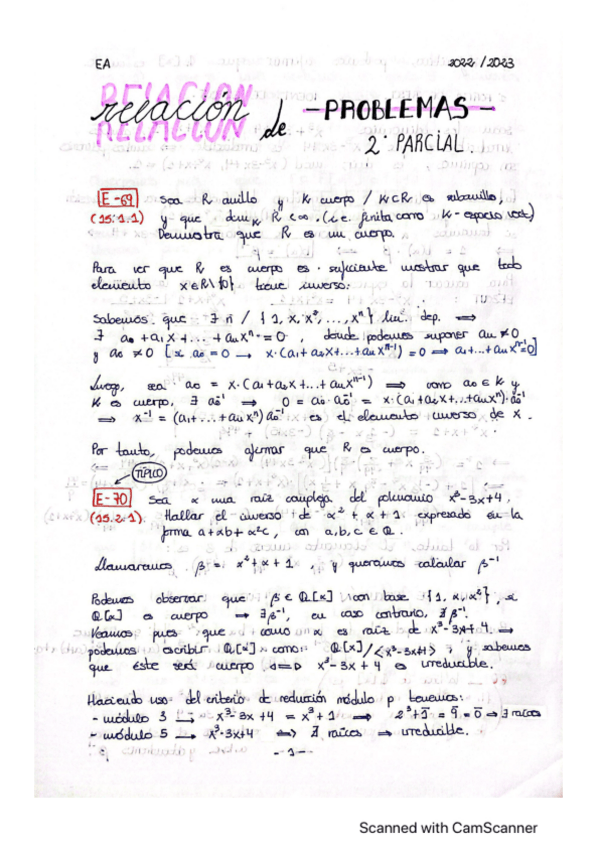 EA 2022/2023
RELACIÓN
relación de -PROBLEMAS-
RELACIÓN
2º PARCIAL.
E-69 Sea R anillo y K cuerpo / K⊂R es subanillo,
(15.1.1) y que dimK R < ∞. (i.e. finita como K-espacio vect.)
Demuestra que R es un cuerpo.
Para ver que R es cuerpo es suficiente mostrar que todo
elemento x∈R\{0} tiene inverso.
Sabemos que ∃ n / {1, x, x², ..., xⁿ} lin. dep. ⟹
∃ a₀ + a₁x + ... + aₙxⁿ = 0, donde podemos suponer aₙ ≠ 0
y a₀ ≠ 0 [si a₀ = 0 → x·(a₁ + a₂x + ... + aₙxⁿ⁻¹) = 0 ⟹ a₁ + ... + aₙxⁿ⁻¹ = 0]
Luego, sea a₀ = x·(a₁ + a₂x + ... + aₙxⁿ⁻¹) ⟹ como a₀ ∈ K y
K es cuerpo, ∃ a₀⁻¹ ⟹
⟹ x⁻¹ = (a₁ + ... + aₙxⁿ) a₀⁻¹ es el elemento inverso de x.
Por tanto, podemos afirmar que R es cuerpo.
TÍPICO
E-70 Sea α una raíz compleja del polinomio x³-3x+4,
(15.2.1). Hallar el inverso de α² + α + 1 expresado en la
forma a+αb+α²c, con a,b,c ∈ Q.
Llamaremos β = α² + α + 1, y queremos calcular β⁻¹
Podemos observar que β ∈ Q[α] con base {1, α, α²}, si
Q[α] es cuerpo → ∃β⁻¹, en caso contrario, ∄ β⁻¹.
Veamos pues que como α es raíz de x³-3x+4 ⟹
podemos escribir Q[α] como Q[x]/<x³-3x+4>, y sabemos
que éste será cuerpo ⟺ x³-3x+4 es irreducible.
Haciendo uso del criterio de reducción módulo p tenemos:
- módulo 3 → x³-3x+4 = x³+1 ⟹ 2³+1̄ = 9̄ = 0̄ ⟹ ∃ raíces
- módulo 5 → x³-3x+4 ⟹ ∄ raíces ⟹ irreducible.
-1-
Scanned with CamScanner